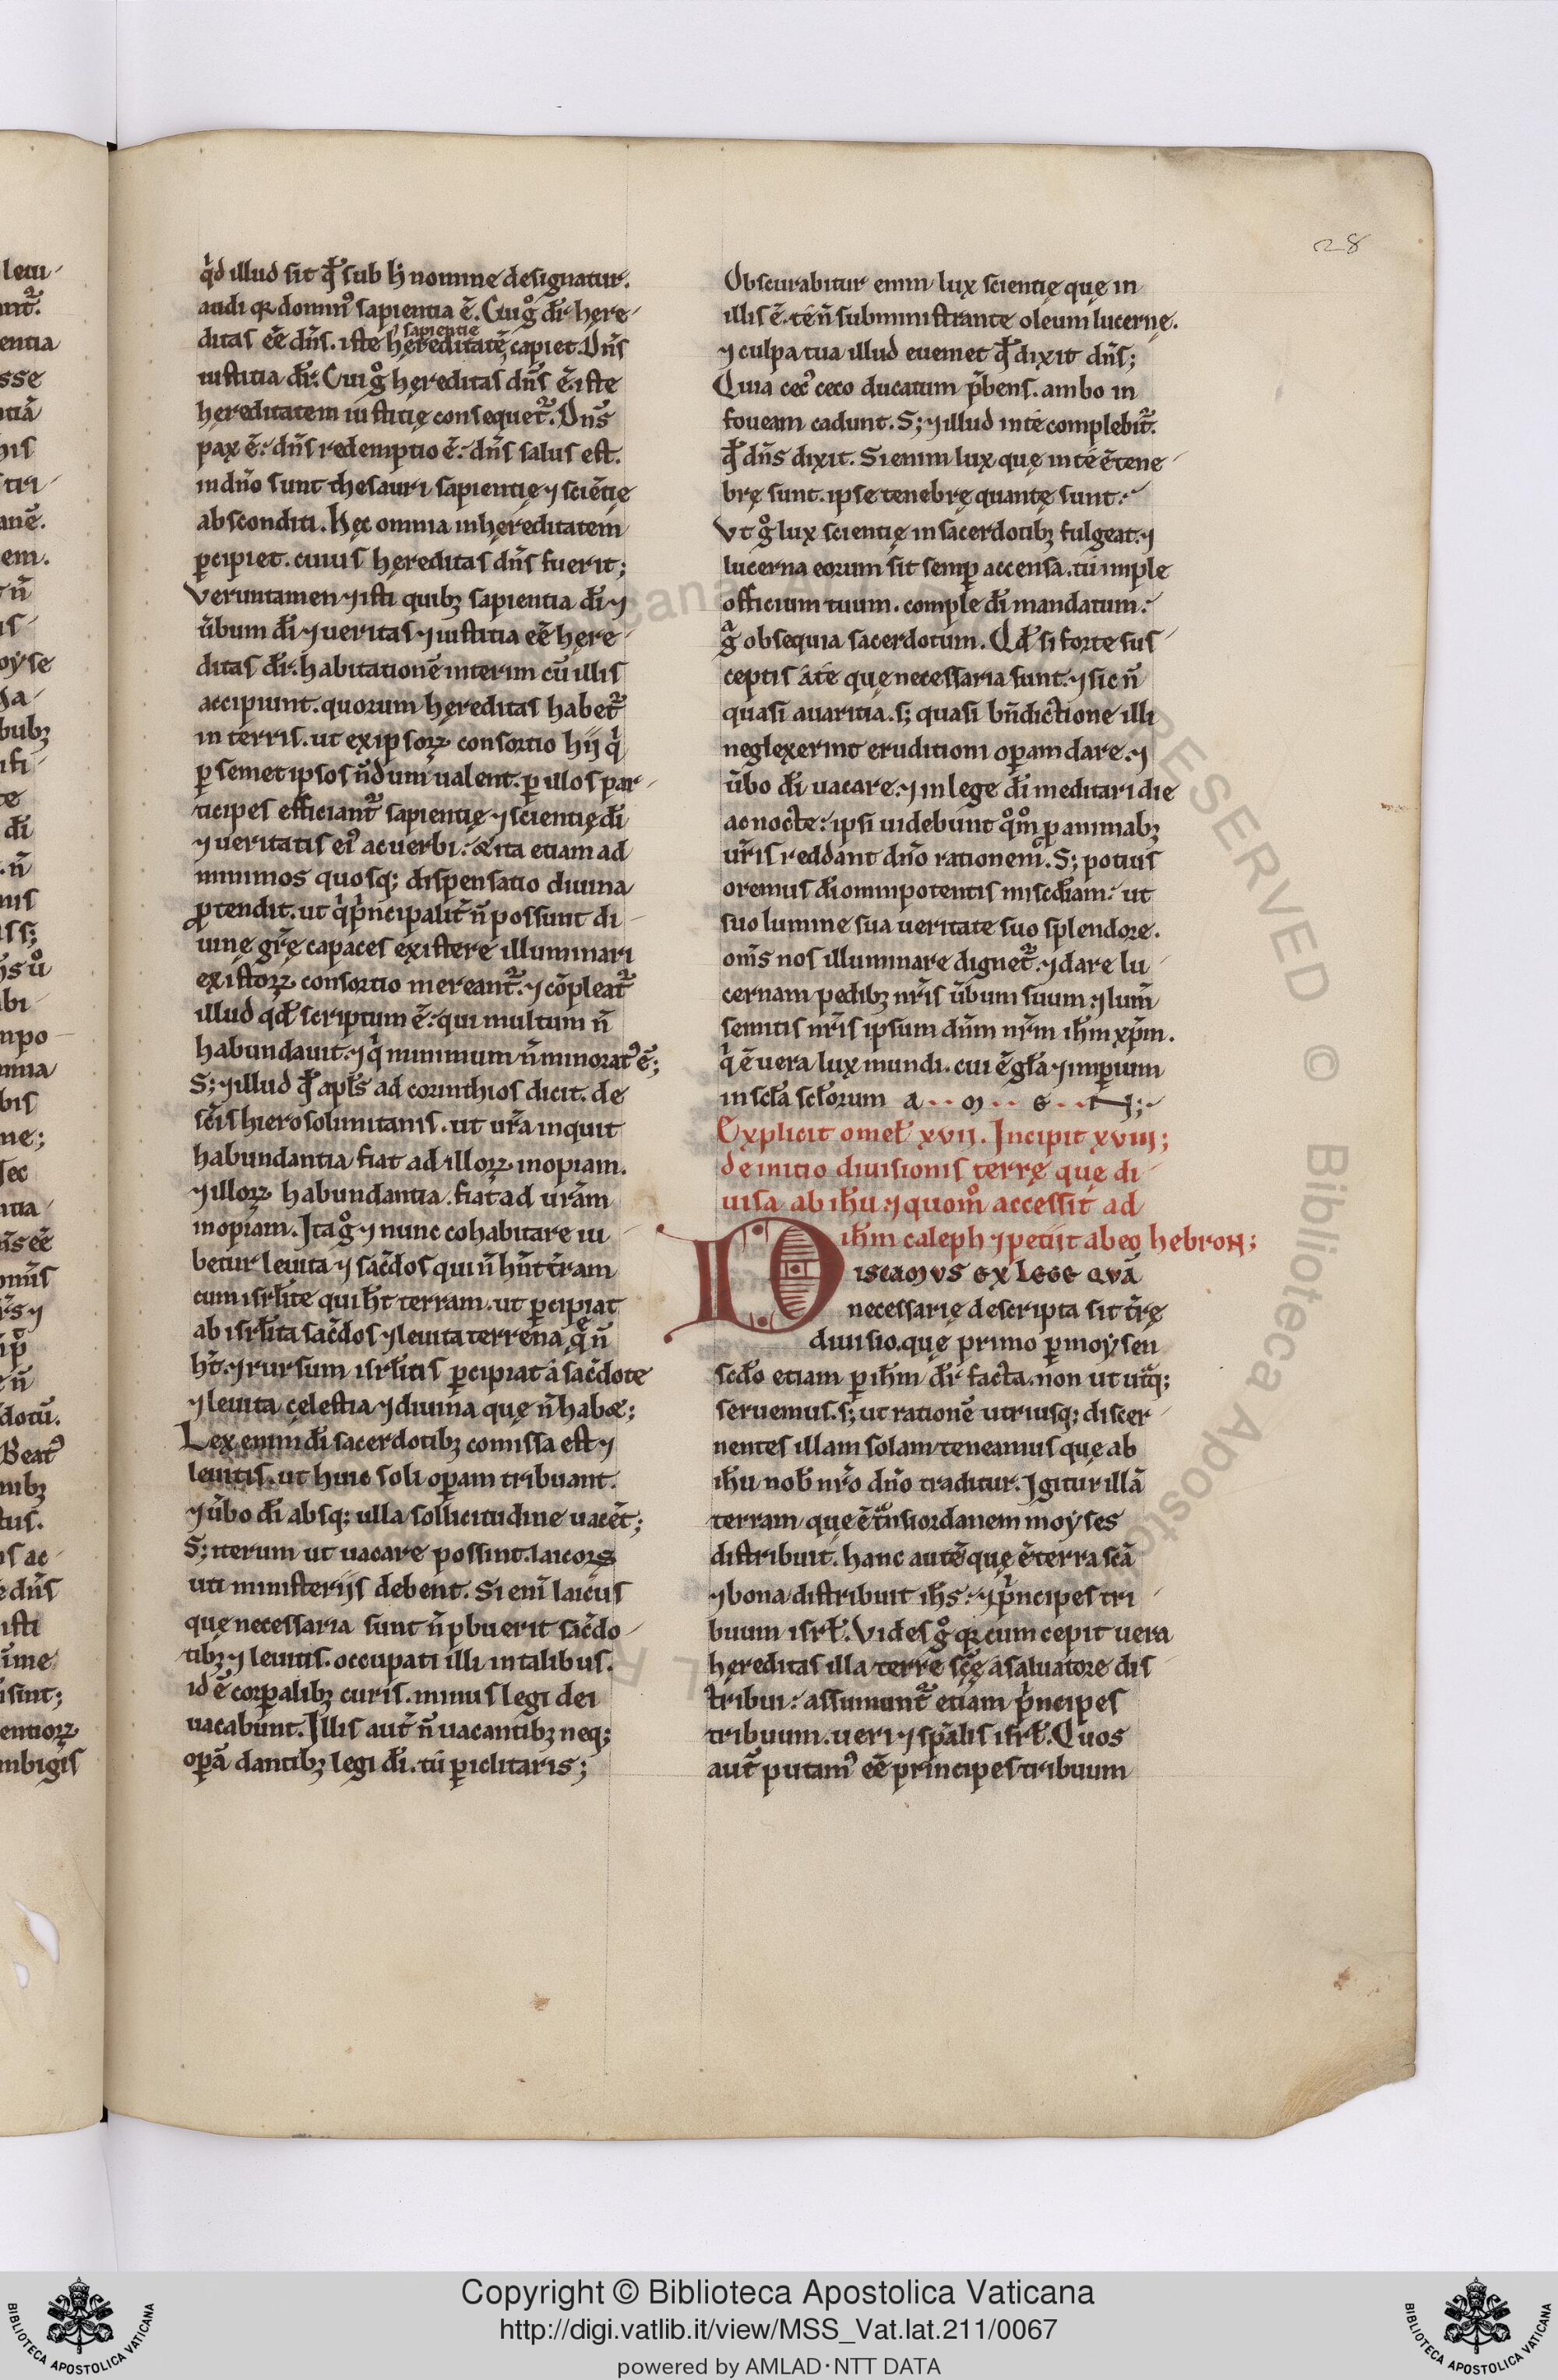 28
q̍d illud sit qd̄ sub h̍ nomine designatur.
audi quia domin᷒ sapientia ē. Cui gͦ dr̄ here-
ditas eē dn̄s. iste sapientie hęreditatē capiet. Dn̄s
iustitia dr̄. Cui gͦ hęreditas dn̄s ē. iste
hereditatem iustitię consequet᷑. Dn̄s
pax ē: dn̄s redemptio ē: dn̄s salus est.
in dn̄o sunt thesauri sapientię ⁊ sciētię
absconditi. hęc omnia in hęreditatem
ꝑcipiet. cuius hęreditas dn̄s fuerit;
Veruntamen ⁊ isti quibꝫ sapientia dī ⁊
ūbum dī ⁊ ueritas ⁊ iustitia eē here-
ditas dr̄: habitationē interim cū illis
accipiunt. quorum hęreditas habet᷑
in terris. ut ex ipsoꝝ consortio hij q̍
ꝑ semet ipsos n̄dum ualent. ꝑ illos par-
ticipes efficiant᷑ sapientię ⁊ scientię dī
⁊ ueritatis ei᷒ ac uerbi: & ita etiam ad
minimos quosq; dispensatio diuina
ꝓtendit. ut q̍ p̍ncipalit̄ n̄ possunt di-
uinę gr̄ę capaces existere illuminari
ex istoꝝ consortio mereant᷑. ⁊ cōpleat᷑
illud qd̄ scriptum ē: qui multum n̄
habundauit. ⁊ q̍ minimum n̄ minorat᷒ ē;
S; ⁊ illud qd̄ apl̄s ad corinthios dicit. de
sc̄is hierosolimitanis. ut ur̄a inquit
habundantia fiat ad illoꝝ inopiam.
⁊ illoꝝ habundantia. fiat ad ur̄am
inopiam. Ita gͦ ⁊ nunc cohabitare iu-
betur leuita ⁊ sac̄dos qui n̄ hn̄t t̄ram
cum isrl̄ite qui h̄t terram. ut ꝑcipiat
ab isrl̄ita sac̄dos ⁊ leuita terrena. quę n̄
h̄t. ⁊ rursum isrl̄itis ꝑcipiat a sac̄dote
⁊ leuita cęlestia ⁊ diuina quę n̄ hab&;
Lex enim dī sacerdotibꝫ comissa est ⁊
leuitis. ut huic soli oꝑam tribuant.
⁊ ūbo dī absq; ulla sollicitudine uacēt;
S; iterum ut uacare possint. laicoꝝ
uti ministerijs debent. Si enī laicus
quę necessaria sunt n̄ p̄buerit sac̄do-
tibꝫ ⁊ leuitis. occupati illi in talibus.
id ē corꝑalibꝫ curis. minus legi dei
uacabunt. Illis aut̄ n̄ uacantibꝫ neq;
oꝑā dantibꝫ legi dī. tu ꝑiclitaris;
Obscurabitur enim lux scientię quę in
illis ē. te n̄ subministrante oleum lucernę.
⁊ culpa tua illud eueniet qd̄ dixit dn̄s;
Quia cec᷒ ceco ducatum p̄bens. ambo in
foueam cadunt. S; ⁊ illud in te complebit᷑.
qd̄ dn̄s dixit. Si enim lux quę in te ē tene-
brę sunt. ipse tenebrę quantę sunt:
Vt gͦ lux scientię in sacerdotibꝫ fulgeat. ⁊
lucerna eorum sit semꝑ accensa. tu imple
officium tuum. comple dī mandatum:
gͣ obsequia sacerdotum. Qd̄ si forte sus-
ceptis a te quę necessaria sunt. ⁊ sic n̄
quasi auaritia. s; quasi bn̄dictione illi
neglexerint eruditioni oꝑam dare. ⁊
ūbo dī uacare. ⁊ in lege dī meditari die
ac nocte: ipsi uidebunt qͦmͦ ꝓ animabꝫ
ur̄is reddant dn̄o rationem. S; potius
oremus dī omnipotentis misc̄diam: ut
suo lumine sua ueritate suo splendore.
om̄s nos illuminare dignet᷑. ⁊ dare lu-
cernam pedibꝫ nr̄is ūbum suum. ⁊ lum̄
semitis nr̄is ipsum dn̄m nr̄m ih̄m xp̄m.
q̍ ē uera lux mundi. cui ē gl̄a ⁊ imꝑium
in scl̄a scl̄orum a · · m · · e · · N;
Explicit omel̄ xvij. Incipit xviij;
de initio diuisionis terrę quę di-
uisa ab ih̄u ⁊ quomͦ accessit ad
ih̄m caleph ⁊ petiit ab eo hebroN;
DISCAMVS EX LEGE QVĀ
necessarię descripta sit t̄rę
diuisio. quę primo ꝑ moẏsen
scd̄o etiam ꝑ ih̄m dr̄ facta. non ut utͣq;
seruemus. s; ut rationē utriusq; discer-
nentes illam solam teneamus que ab
ih̄u nob̄ nr̄o dn̄o traditur. Igitur illā
terram que ē t̄ns iordanem moẏses
distribuit. hanc autē quę ē terra sc̄a
⁊ bona distribuit ih̄s: ⁊ p̍ncipes tri-
buum isrl̄. Vides gͦ quia cum cepit uera
hęreditas illa terre sc̄ę a saluatore dis-
tribui: assumunt᷑ etiam p̍ncipes
tribuum. ueri ⁊ sp̄alis isrl̄. Quos
aut̄ putam᷒ eē principes tribuum
Copyright © Biblioteca Apostolica Vaticana
http://digi.vatlib.it/view/MSS_Vat.lat.211/0067
powered by AMLAD·NTT DATA
BIBLIOTECA APOSTOLICA VATICANA
BIBLIOTECA APOSTOLICA VATICANA